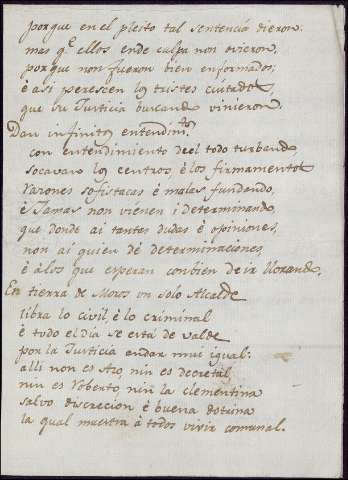 porque en el pleito tal sentencia dieron:
mas q.e ellos ende culpa non ovieron,
porque non fueron bien enformados;
è asi perescen los tristes cuitados,
que su Justicia buscando vinieron.
Dan infinitos entendim.tos
con entendimiento de el todo turbando
socavan los centros, è los firmamentos
razones sofisticas è malas fundando,
è Jamas non vienen i determinando,
que donde ai tantas dudas è opiniones,
non ai quien dè determinaciones,
è à los que esperan convien de ir llorando,
En tierra de Moros un solo Alcalde
libra lo civil, è lo criminal
è todo el dia se està de valde
por la Justicia andar mui igual:
alli non es Azo, nin es decretal
nin es Roberto, nin la clementina
salvo discrecion è buena dotrina
la qual muestra à todos vivir comunal.